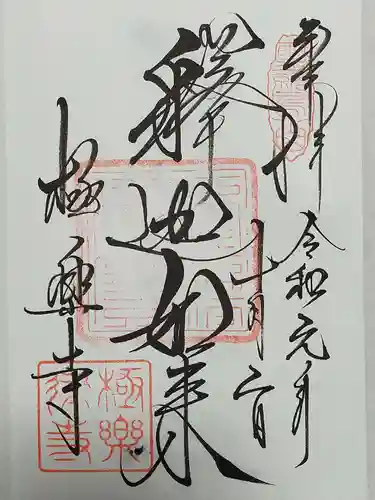 奉拝
令和元年
十月二日
釋迦如来
極楽寺
極樂寺